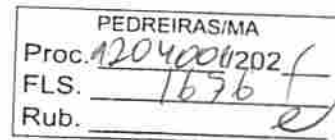 PEDREIRAS/MA
Proc. 1204001/202
FLS. 1676
Rub.